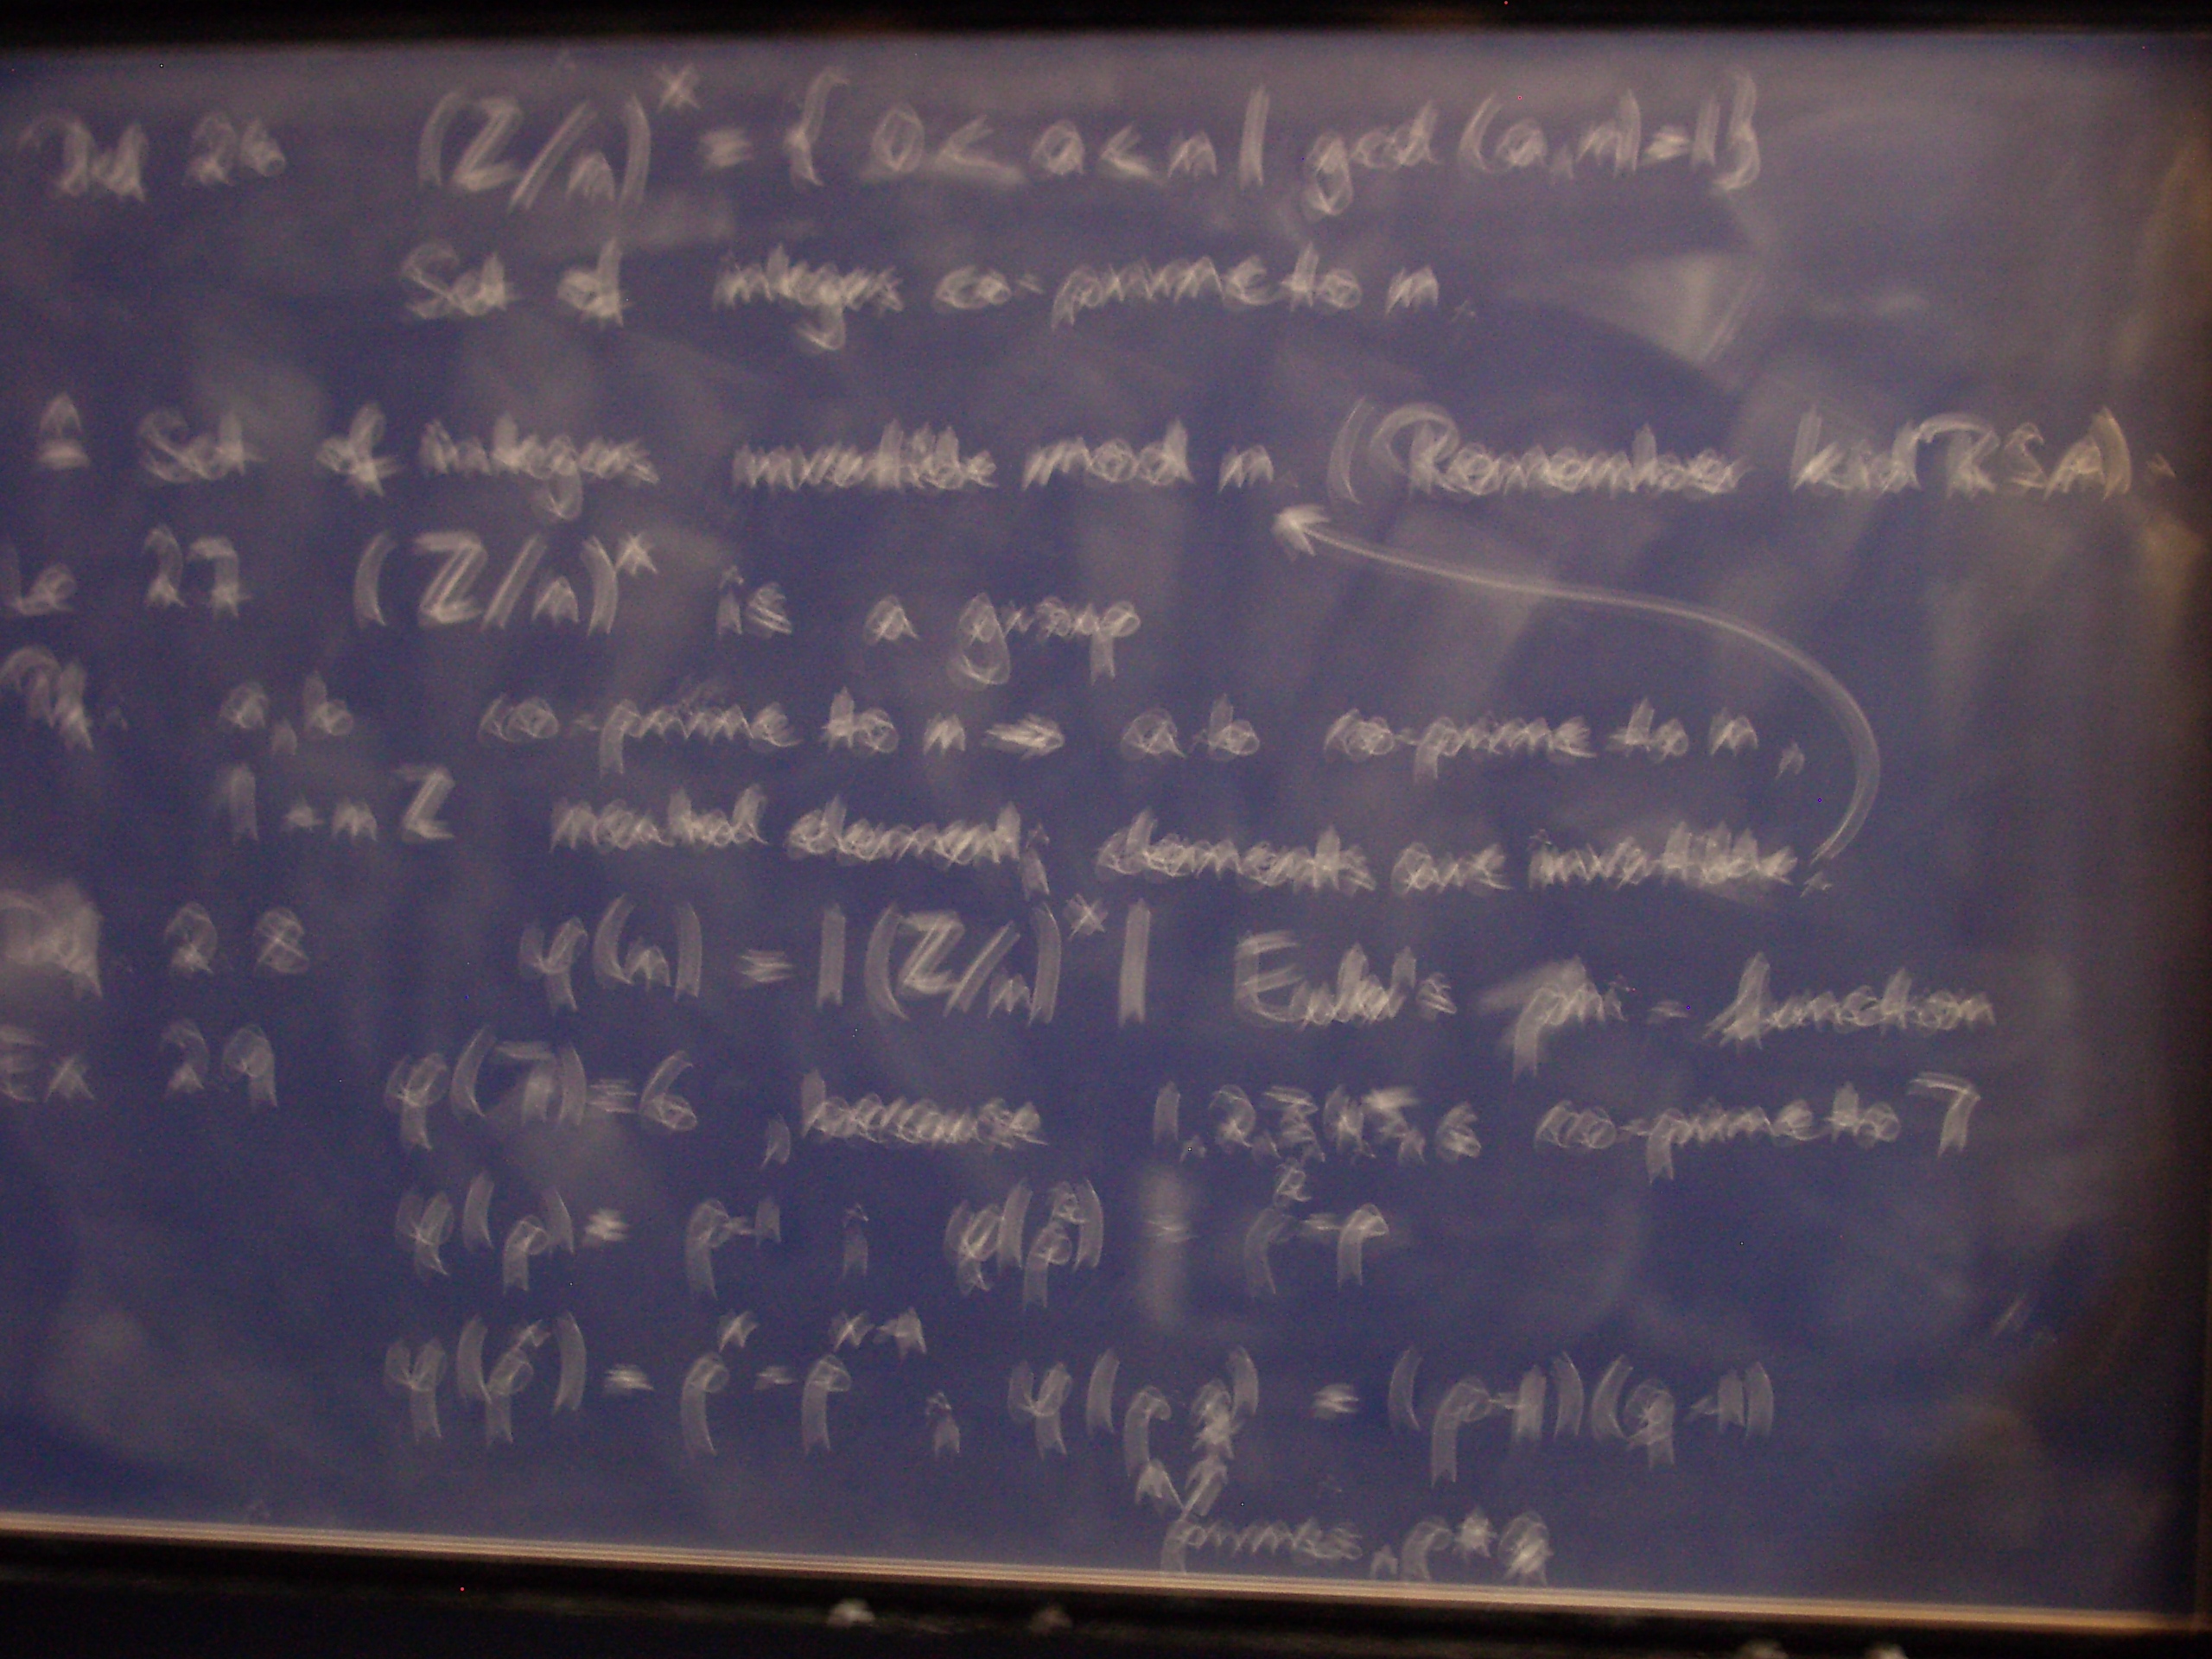 26 (Z/n)^x = { 0 < a < n | gcd (a, n) = 1 }
Set of integers co-prime to n.
= Set of integers invertible mod n. (Remember kid RSA).
27 (Z/n)^x is a group
a, b co-prime to n → a·b co-prime to n,
1 in Z neutral element, elements are invertible.
28 φ(n) = |(Z/n)^x| Euler's phi-function
Ex 29 φ(7) = 6, because 1,2,3,4,5,6 co-prime to 7
φ(p) = p-1 ; φ(p²) = p²-p
φ(p^r) = p^r - p^r-1 ; φ(p q) = (p-1)(q-1)
primes, p ≠ q